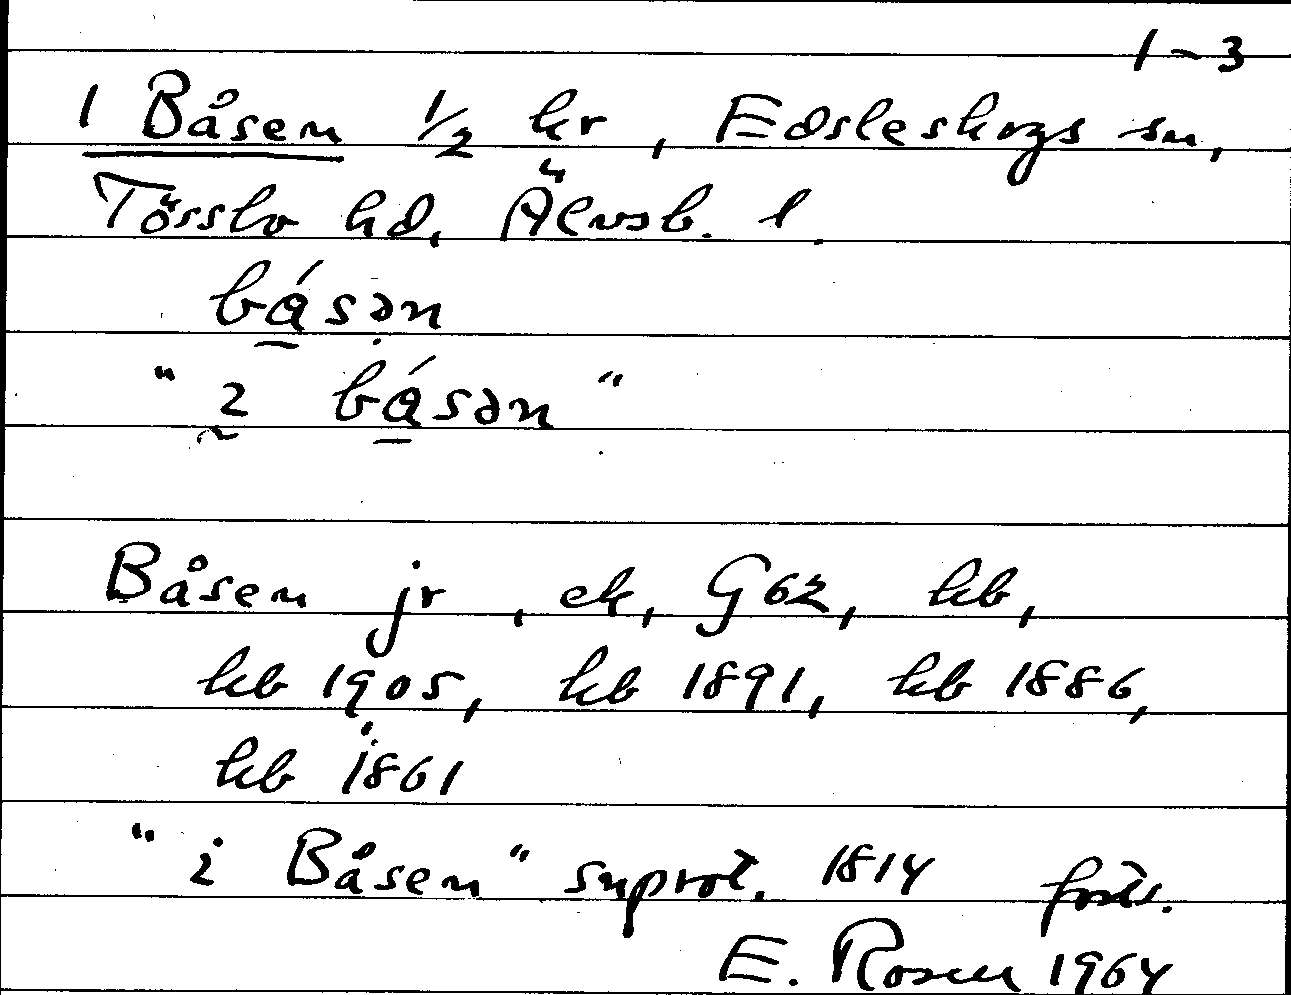 1-3
1 Båsen 1/2 hr, Edsleskogs sn,
Tössbo hd, Älvsb. l.
bá̱sən
"ı bá̱sən"
Båsen jr, ek, G62, hb,
kb 1905, kb 1891, kb 1886,
kb 1861
"i Båsen" snprot. 1814 forts.
E. Rosen 1964